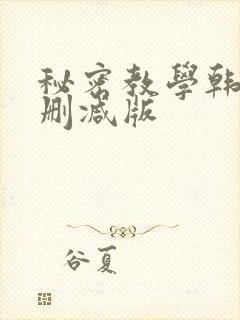 秘密教學韩
删减版
谷夏